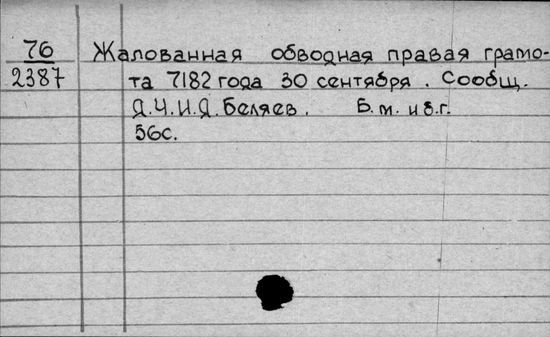 76
2387
Жалованная обводная правая грамо-
та 7182 года 30 сентября. Сообщ.
Д.Ч.И.Д. Беляев. Б.м. и б.г.
56с.